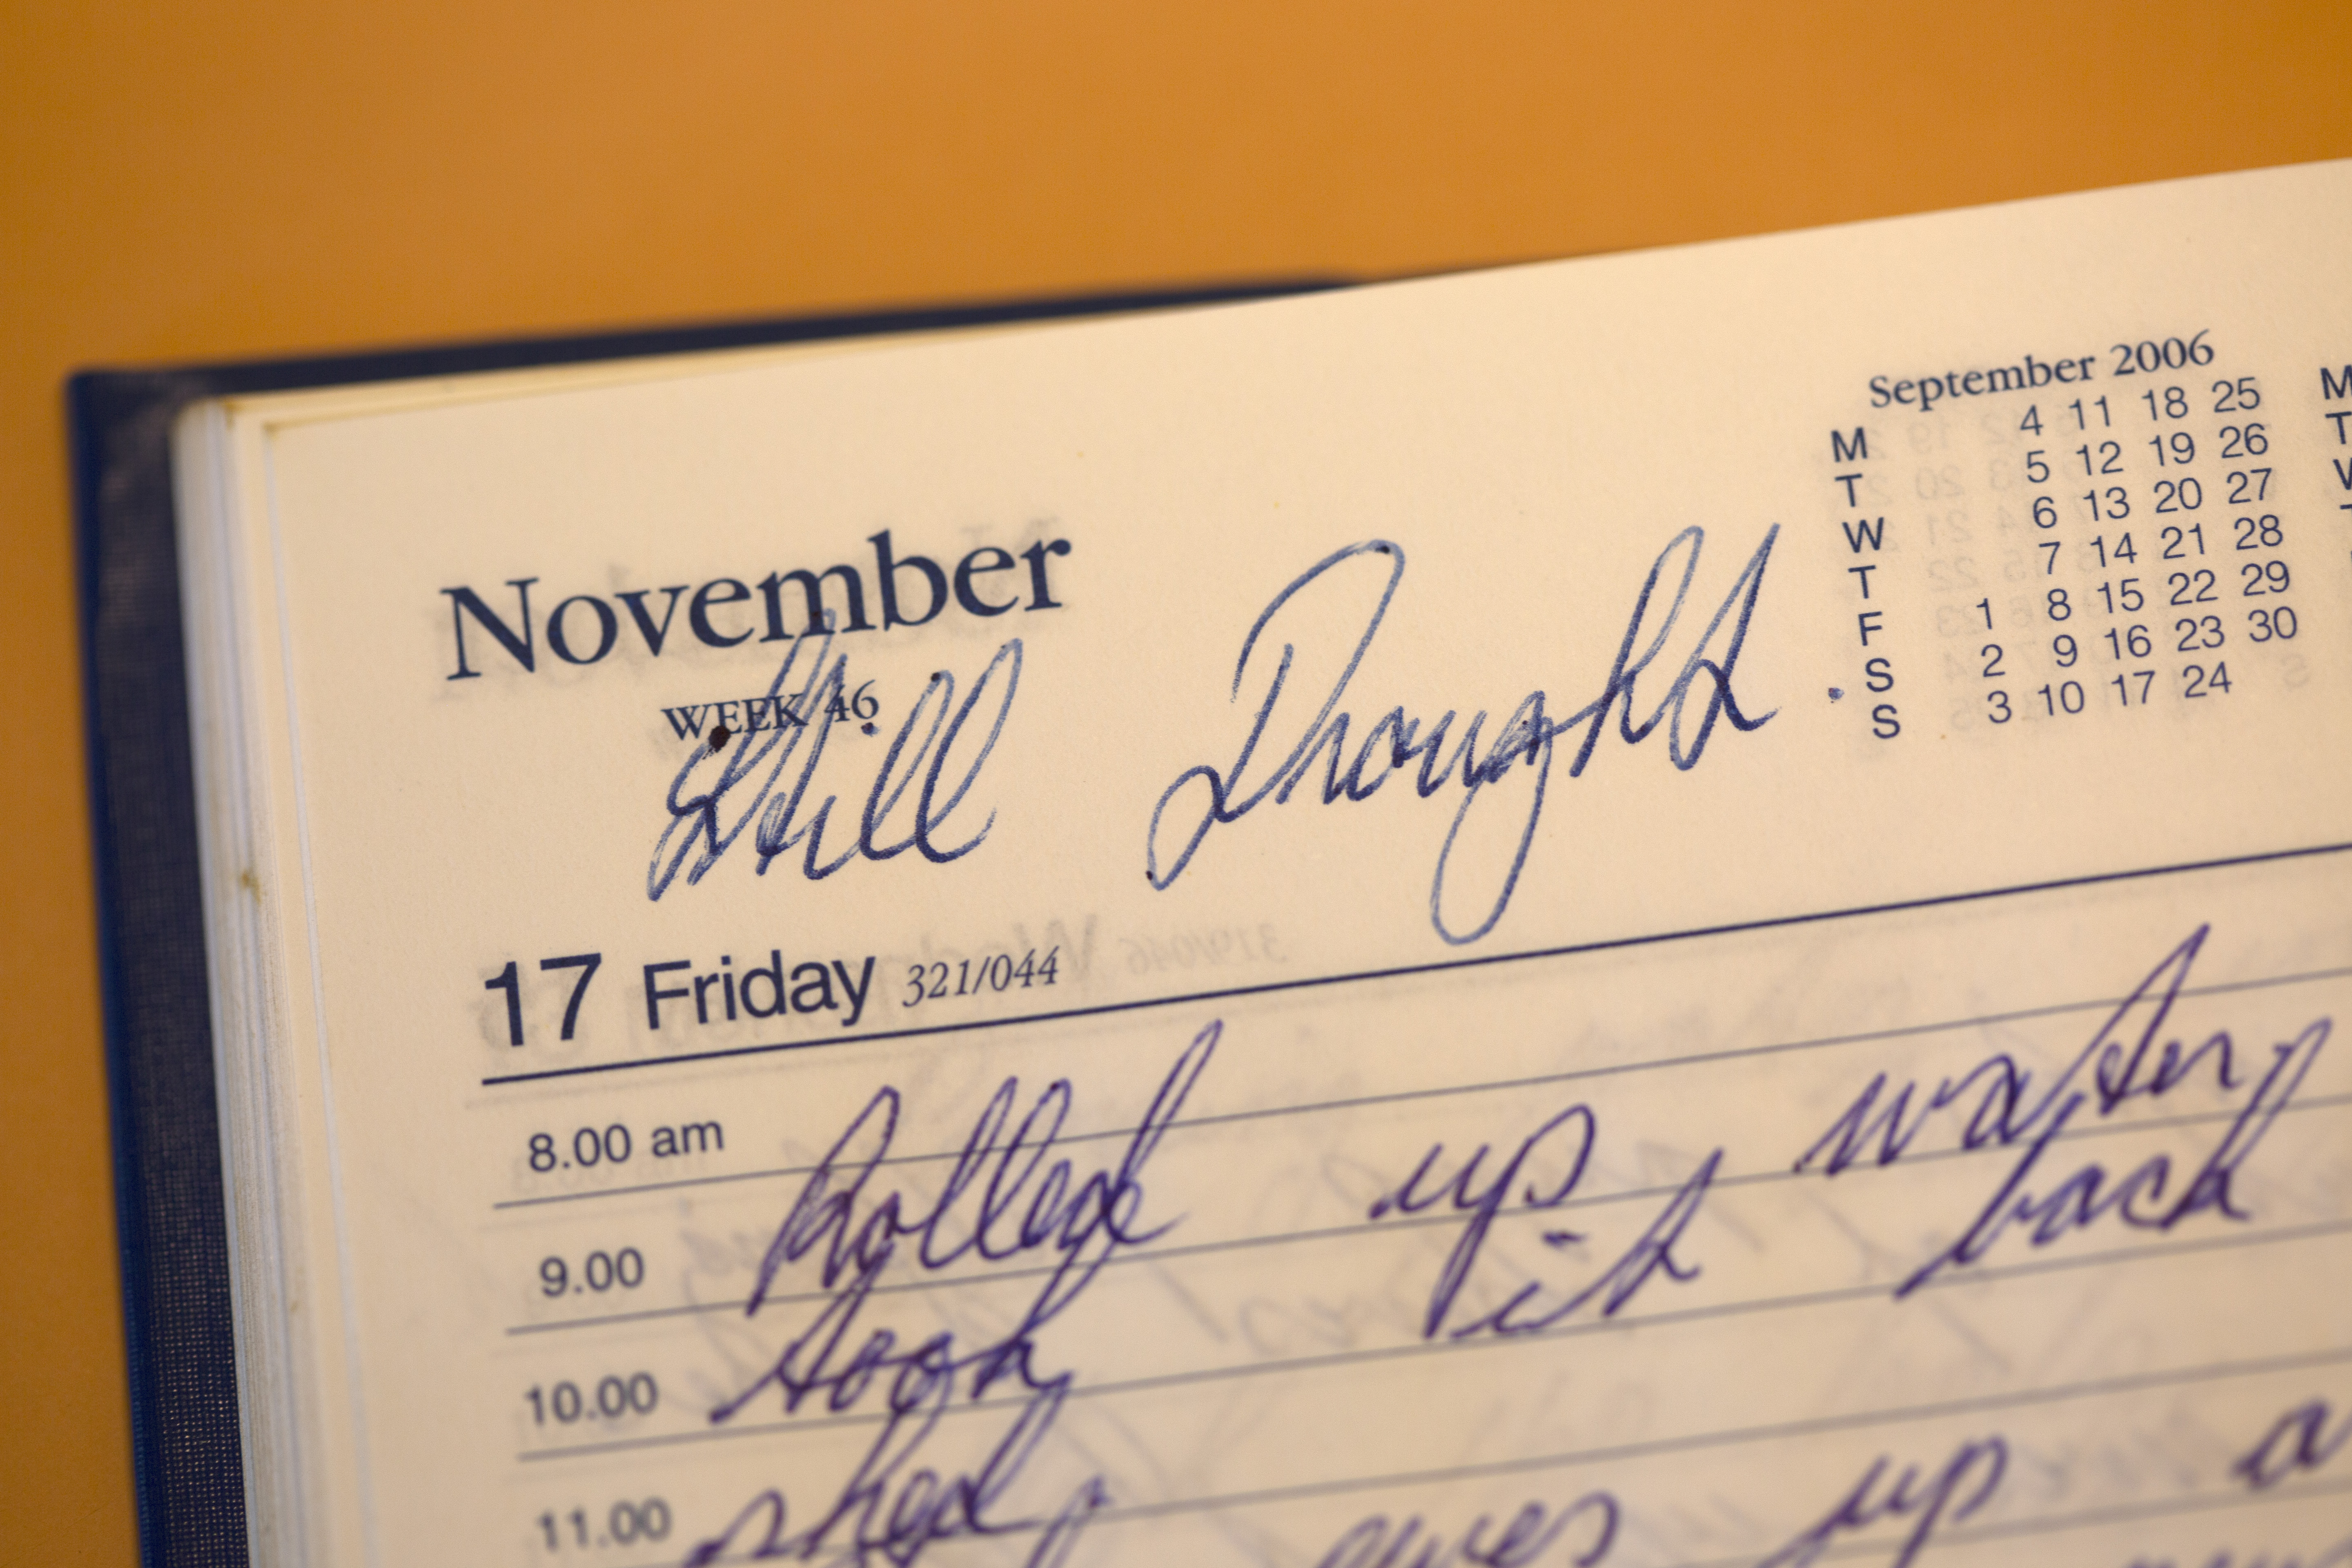 September 2006
M 4 11 18 25 M
T 5 12 19 26 T
W 6 13 20 27 W
T 7 14 21 28
F 1 8 15 22 29
S 2 9 16 23 30
S 3 10 17 24
November
WEEK 46
Still Drought.
17 Friday 321/044
8.00 am
Rolled up water
9.00
took it back
10.00
shed
11.00
ewes up a